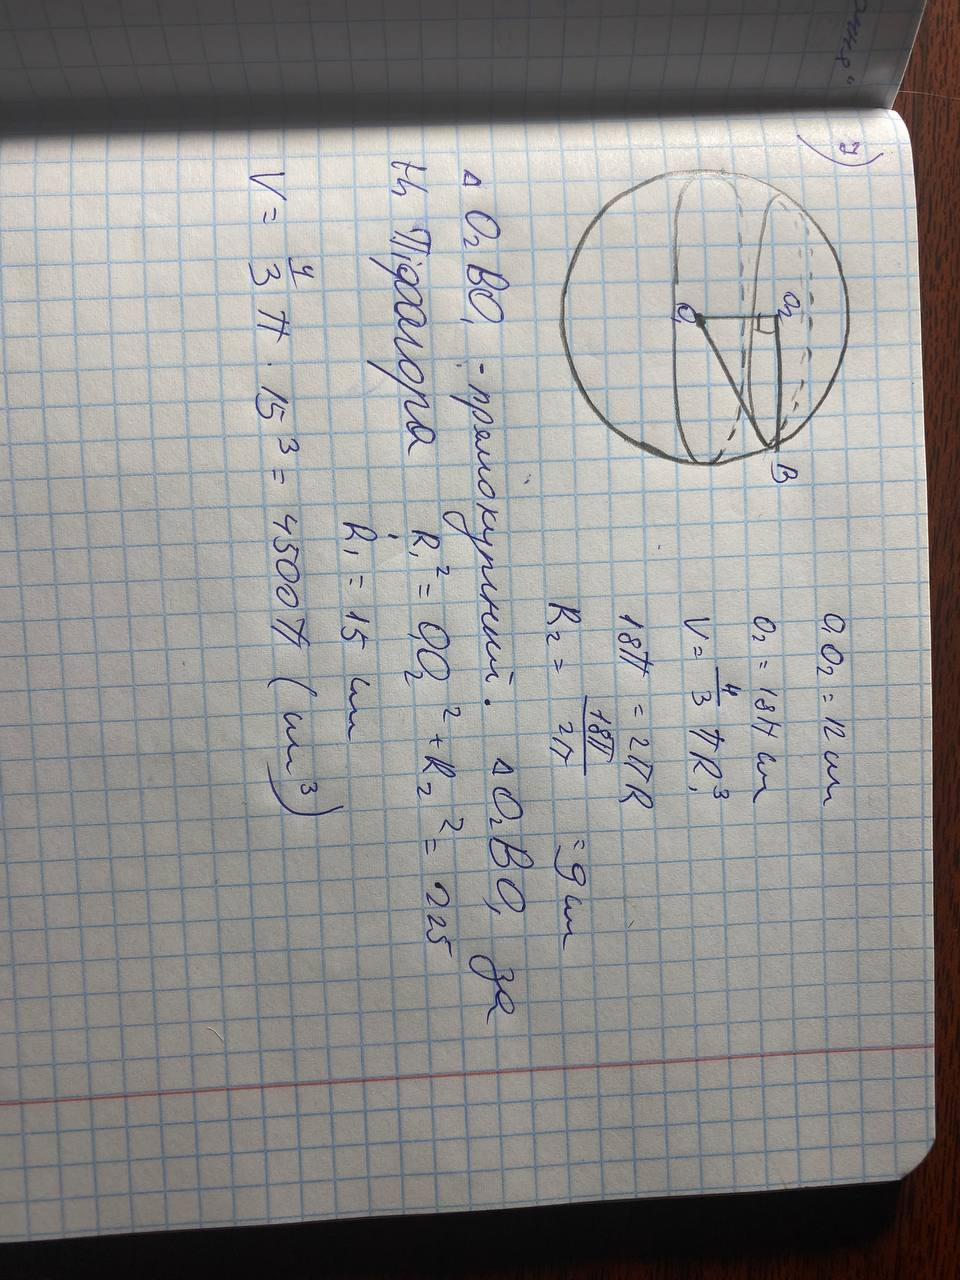 7)
O₂
B
O₁
O₁O₂ = 12 см
O₂ = 18π см
V = 4/3 πR₁³
18π = 2πR
R₂ = 18π/2π = 9 см
△ O₂BO₁ - прямокутний. △ O₂BO₁ за
th Піфагора R₁² = O₁O₂² + R₂² = 225
R₁ = 15 см
V = 4/3 π · 15³ = 4500π (см³)